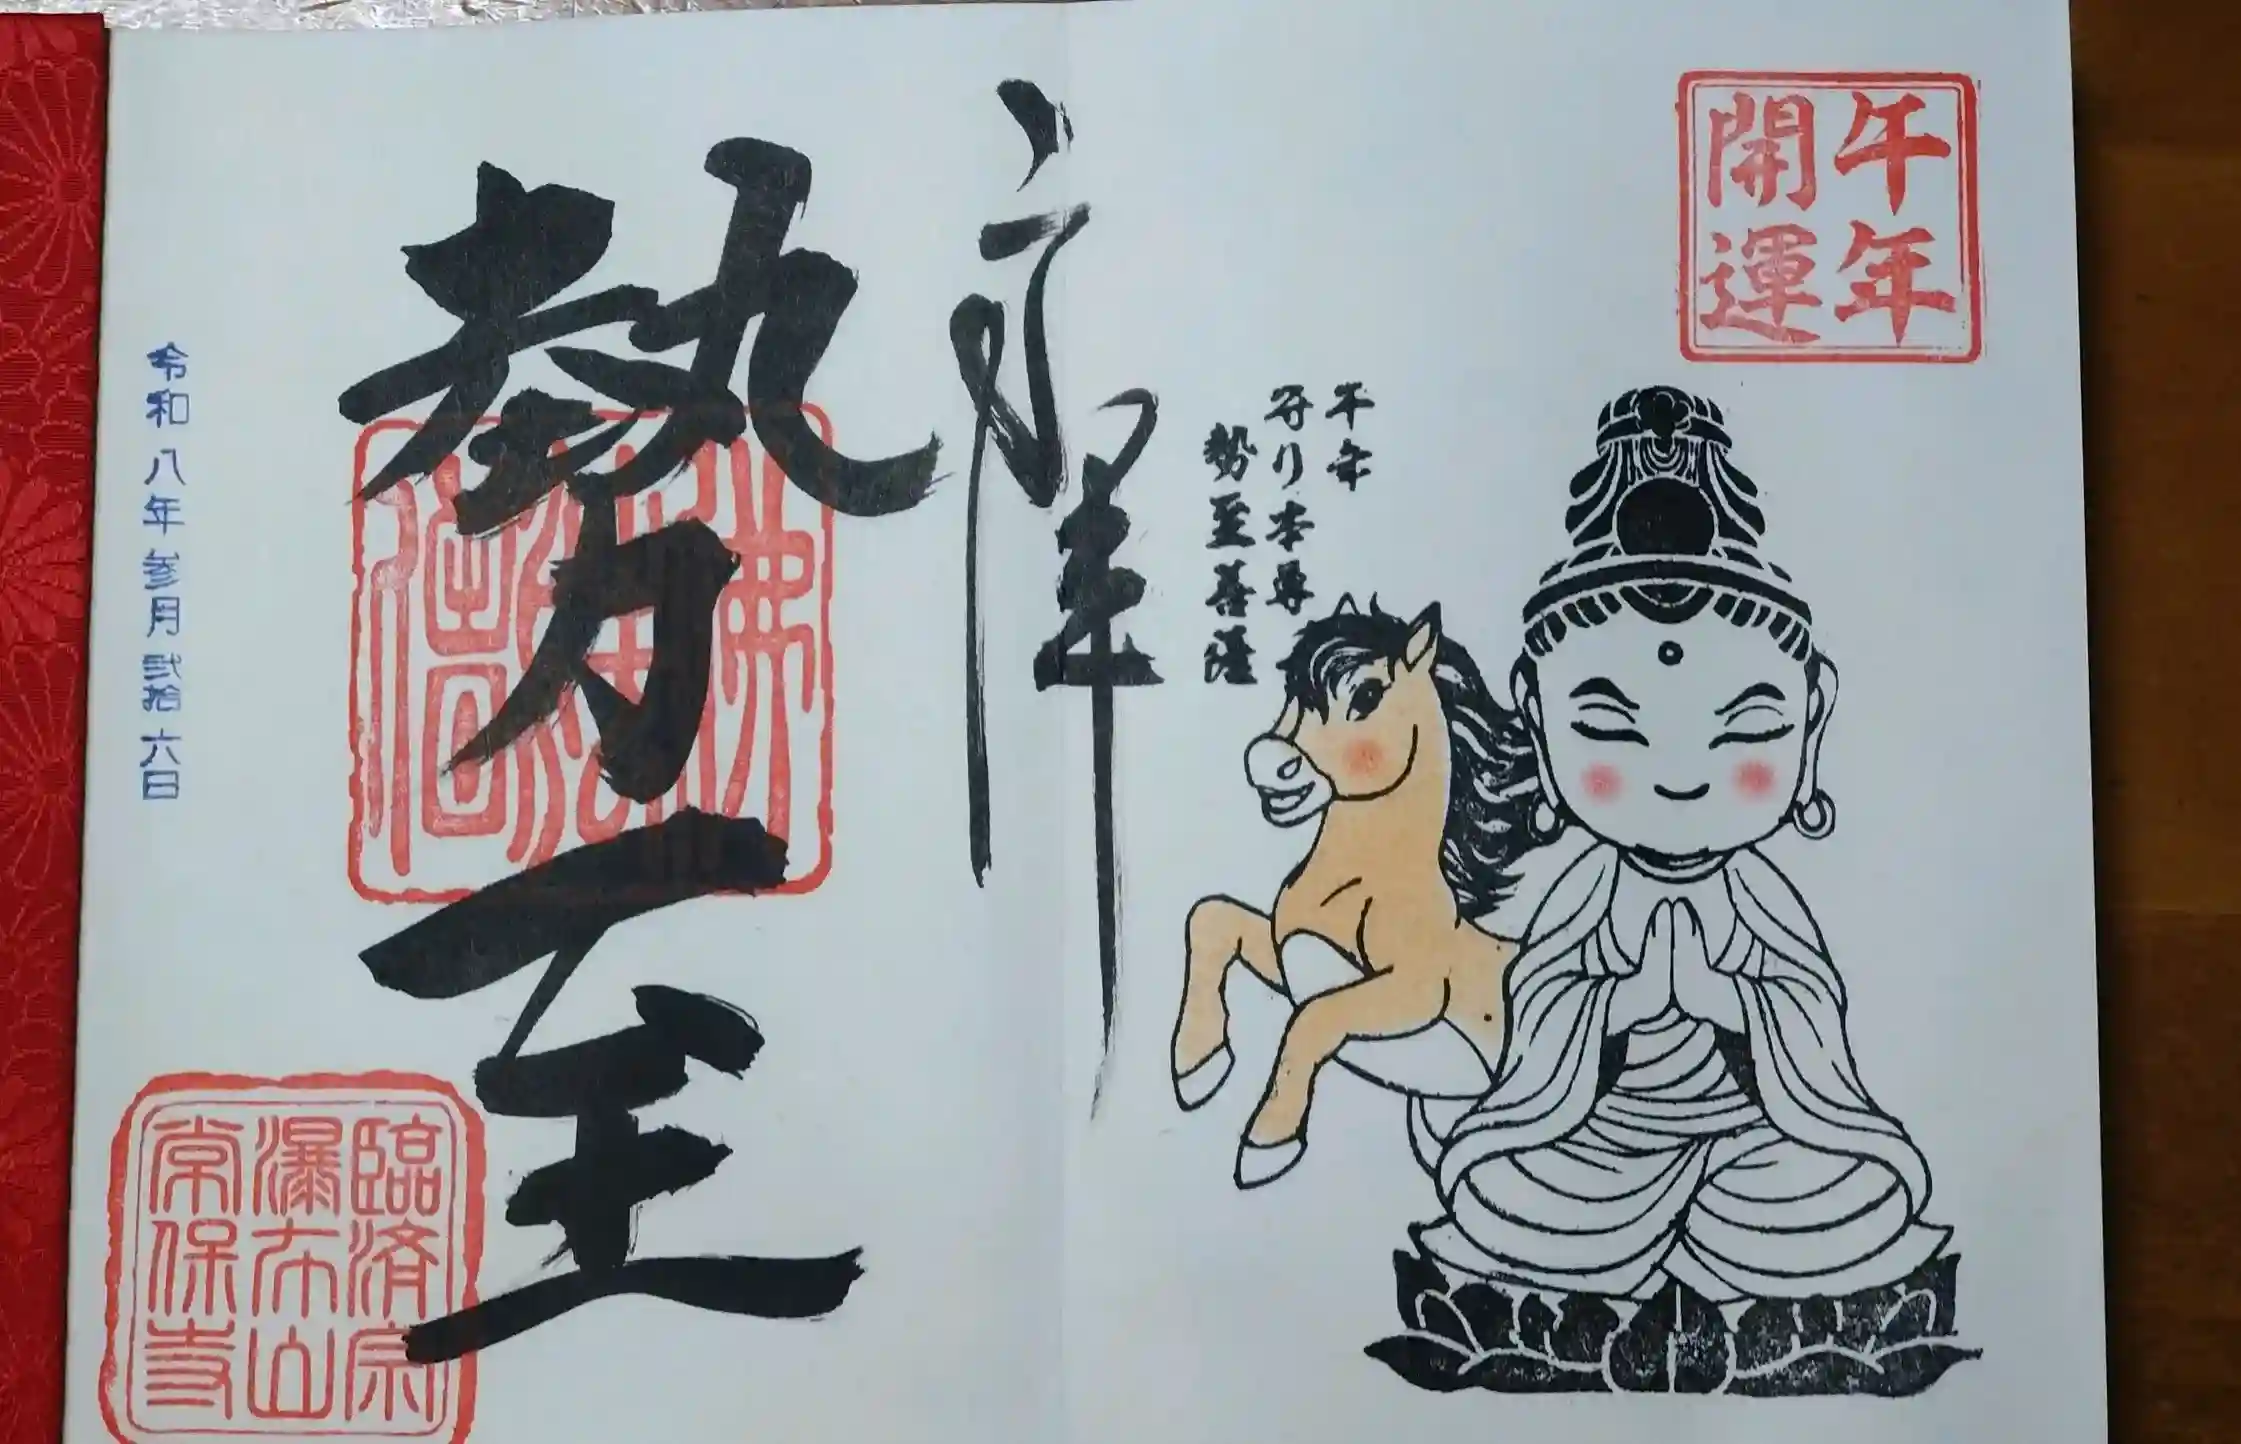 午年
開運
午年
守り本尊
勢至菩薩
奉拝
勢至
佛法僧寶
臨済宗
瀑布山
常保寺
令和八年参月弐拾六日